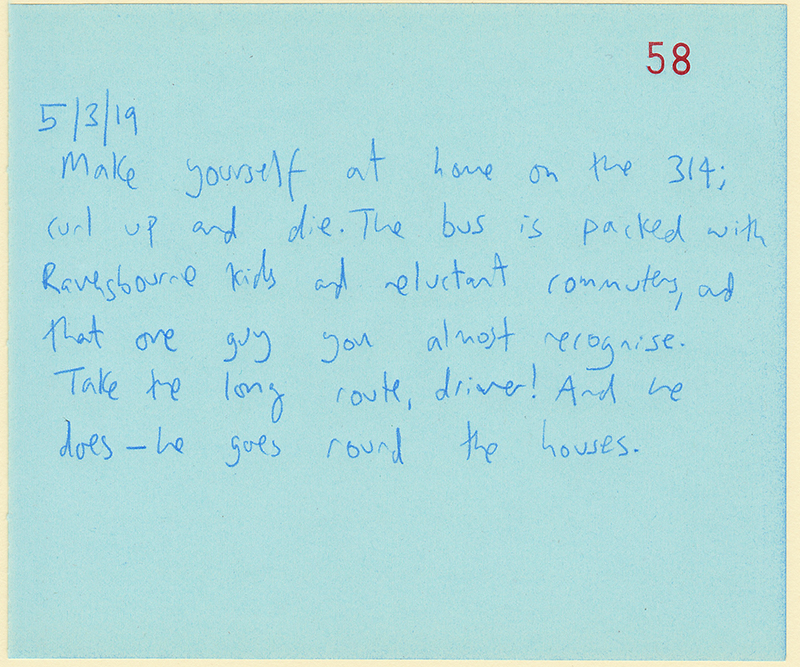 58
5/3/19
Make yourself at home on the 314;
curl up and die. The bus is packed with
Ravensbourne kids and reluctant commuters, and
that one guy you almost recognise.
Take the long route, driver! And he
does – he goes round the houses.